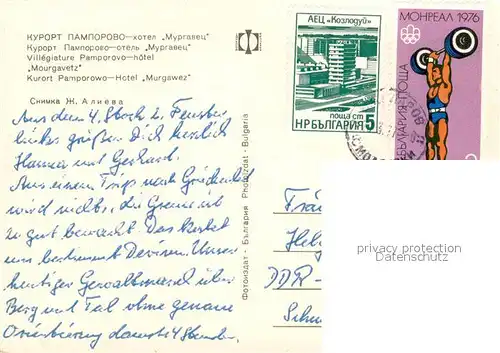 КУРОРТ ПАМПОРОВО—хотел „Мургавец"
Курорт Пампорово—отель „Мургавец"
Villégiature Pamporovo-hôtel
„Mourgavetz"
Kurort Pamporowo-Hotel „Murgawez"
Снимка Ж. Алиева
Aus dem 4. Stock 2. Fenster
links grüßen Dich herzlich
Hanna und Gerhard.
Aus einem Trip nach Griechenld
wird nichts, die Grenze ist
zu gut bewacht. Das Verbot
uns bestimmt Devisen. Unser
heutiger Gewaltmarsch über
Berg und Tal ohne genaue
Orientierung dauerte 4 Stunden.
Фотоиздат - България Photoizdat - Bulgaria
АЕЦ „Козлодуй"
поща ст
НР БЪЛГАРИЯ 5
МОНРЕАЛ 1976
НР БЪЛГАРИЯ ПОЩА
DDR-
privacy protection
Datenschutz